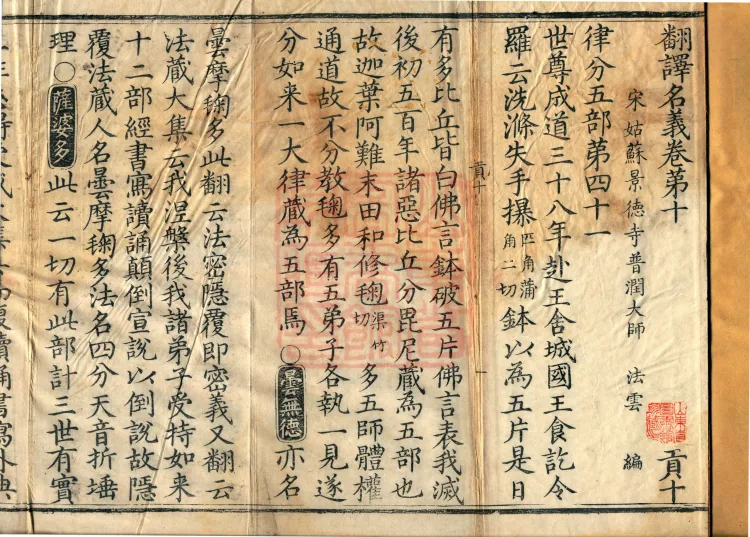 翻譯名義卷第十 貢十
宋姑蘇景德寺普潤大師 法雲 編
律分五部第四十一
世尊成道三十八年赴王舍城國王食訖令
羅云洗滌失手㩧匹角蒲角二切鉢以為五片是日
貢十
有多比丘皆白佛言鉢破五片佛言表我滅
後初五百年諸惡比丘分毘尼藏為五部也
故迦葉阿難末田和修毱渠竹切多五師體權
通道故不分教毱多有五弟子各執一見遂
分如来一大律藏為五部焉○曇無德亦名
曇摩毱多此翻云法密隱覆即密義又翻云
法藏大集云我涅槃後我諸弟子受持如来
十二部經書寫讀誦顛倒宣說以倒說故隱
覆法藏人名曇摩毱多法名四分天音折埵
理○薩婆多此云一切有此部計三世有實